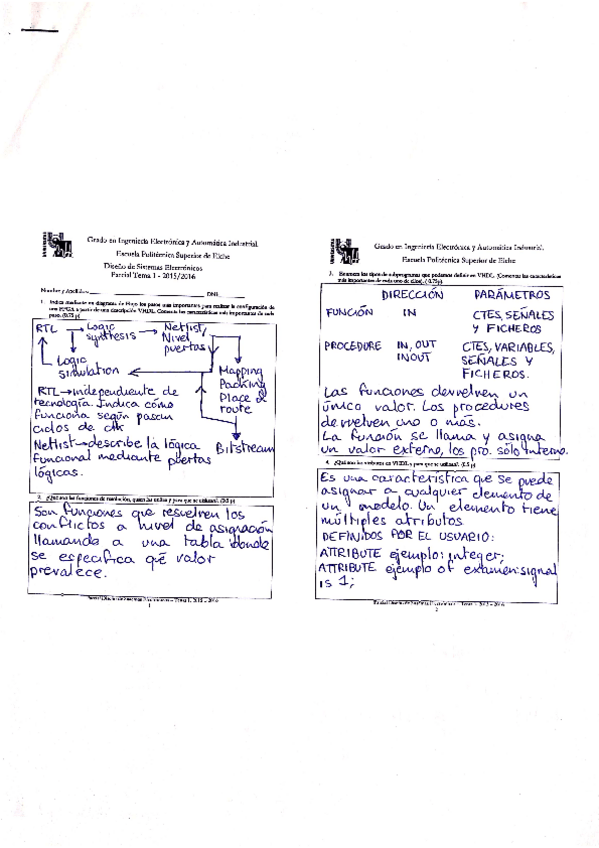 Grado en Ingeniería Electrónica y Automática Industrial.
Escuela Politécnica Superior de Elche
Diseño de Sistemas Electrónicos
Parcial Tema 1 - 2015/2016
Nombre y Apellidos: DNI:
1. Indica mediante un diagrama de flujo los pasos más importantes para realizar la configuración de
una FPGA a partir de una descripción VHDL. Comenta las características más importantes de cada
paso. (0.75 p)
RTL → Logic synthesis → Netlist/ Nivel puertas
Logic simulation
Mapping
Packing
Place &
route
Bitstream
RTL → independiente de
tecnología. Indica cómo
funciona según pasan
ciclos de clk
Netlist → describe la lógica
funcional mediante puertas
lógicas.
2. ¿Qué son las funciones de resolución, quién las utiliza y para que se utilizan?
Son funciones que resuelven los
conflictos a nivel de asignación
llamando a una tabla donde
se especifica qué valor
prevalece.
1
Grado en Ingeniería Electrónica y Automática Industrial.
Escuela Politécnica Superior de Elche
3. Enumera los tipos de subprogramas que podemos definir en VHDL. ¿Comentar las características
más importantes de cada uno de ellos?. (0.75p)
DIRECCIÓN PARÁMETROS
FUNCIÓN IN CTES, SEÑALES
Y FICHEROS
PROCEDURE IN, OUT CTES, VARIABLES,
INOUT SEÑALES Y
FICHEROS.
Las funciones devuelven un
único valor. Los procedures
devuelven uno o más.
La función se llama y asigna
un valor externo, los pro. sólo interno.
4. ¿Qué son los atributos en VHDL y para que se utilizan?. (0.5 p)
Es una característica que se puede
asignar a cualquier elemento de
un modelo. Un elemento tiene
múltiples atributos.
DEFINIDOS POR EL USUARIO:
ATTRIBUTE ejemplo: integer;
ATTRIBUTE ejemplo of examen:signal
is 1;
2